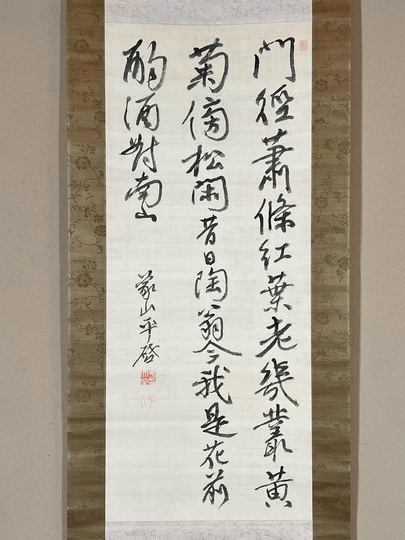 門徑蕭條紅葉老幾叢黃
菊傍松閑昔日陶翁今我是花前
酌酒對南山
蒙山平啓